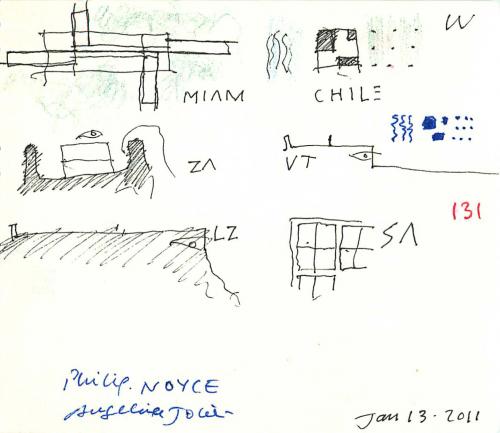 W
MIAM
CHILE
ZA
VT
131
LZ
SA
Philip. NOYCE
Angelina Jolie
Jan 13. 2011